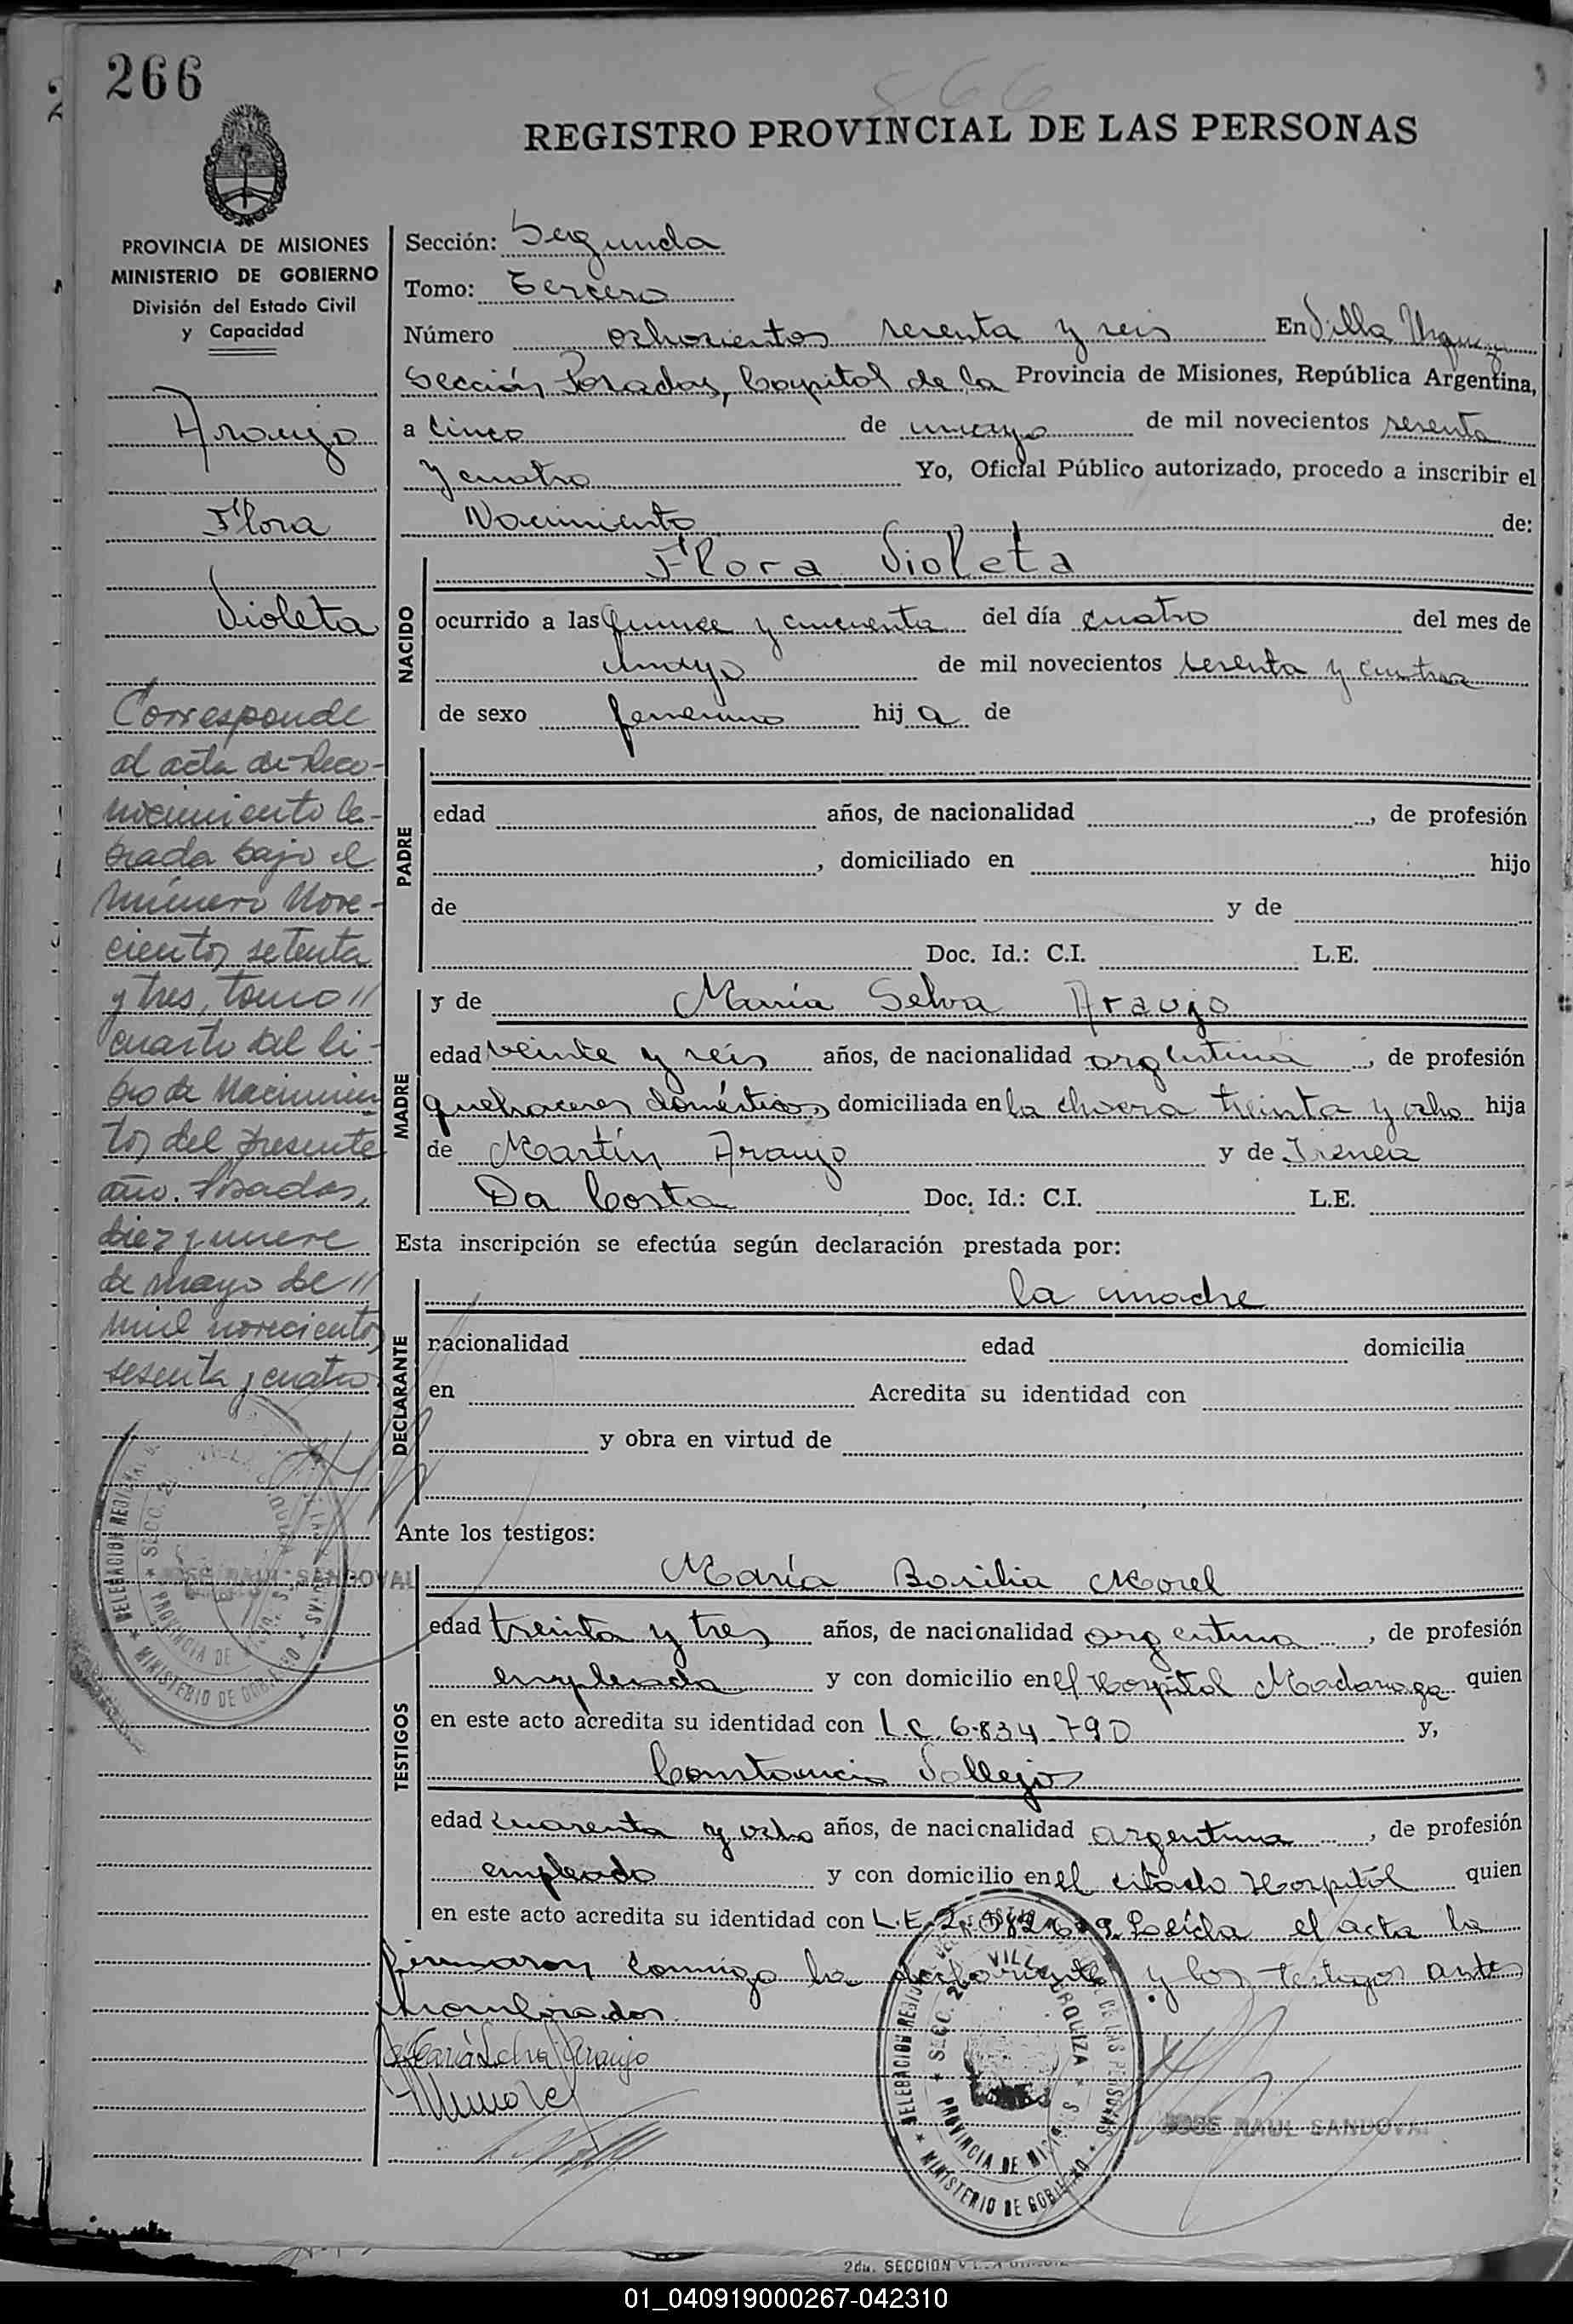 266
866
REGISTRO PROVINCIAL DE LAS PERSONAS
PROVINCIA DE MISIONES
MINISTERIO DE GOBIERNO
División del Estado Civil
y Capacidad
Araujo
Flora
Violeta
Corresponde
al acta de Reco-
nocimiento la-
brada bajo el
número Nove-
cientos setenta
y tres, tomo //
cuarto del li-
bro de Nacimien
tos del presente
año. Posadas,
diez y nueve
de mayo de //
mil novecientos
sesenta y cuatro
JOSE RAUL SANDOVAL
Sección: Segunda
Tomo: Tercero
Número ochocientos sesenta y seis En Villa Urquiza
Sección Posadas, Capital de la Provincia de Misiones, República Argentina,
a cinco de mayo de mil novecientos sesenta
y cuatro Yo, Oficial Público autorizado, procedo a inscribir el
Nacimiento de:
NACIDO
Flora Violeta
ocurrido a las quince y cincuenta del día cuatro del mes de
mayo de mil novecientos sesenta y cuatro
de sexo femenino hij a de
PADRE
edad años, de nacionalidad , de profesión
, domiciliado en hijo
de y de
Doc. Id.: C.I. L.E.
MADRE
y de María Selva Araujo
edad veinte y seis años, de nacionalidad argentina , de profesión
quehaceres domésticos domiciliada en la chacra treinta y ocho hija
de Martín Araujo y de Irenea
Da Costa Doc. Id.: C.I. L.E.
Esta inscripción se efectúa según declaración prestada por:
DECLARANTE
la madre
nacionalidad edad domicilia
en Acredita su identidad con
y obra en virtud de
Ante los testigos:
TESTIGOS
María Basilia Morel
edad treinta y tres años, de nacionalidad argentina , de profesión
empleada y con domicilio en el Hospital Madariaga quien
en este acto acredita su identidad con L.C. 6.834.790 y,
Constancio Vallejos
edad cuarenta y ocho años, de nacionalidad argentina , de profesión
empleado y con domicilio en el citado Hospital quien
en este acto acredita su identidad con L.E. Leída el acta la
firmaron conmigo la declarante y los testigos antes
nombrados.
María Selva Araujo
DELEGACION REGIONAL DE LAS PERSONAS
SECC. 2da. VILLA URQUIZA
PROVINCIA DE MISIONES
MINISTERIO DE GOBIERNO
JOSE RAUL SANDOVAL
2da. SECCION
01_040919000267-042310